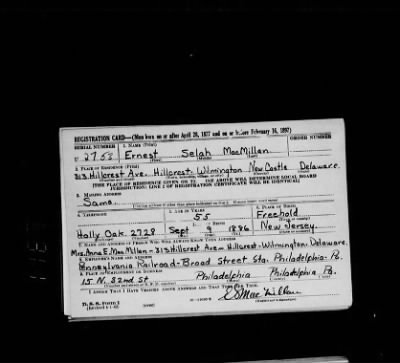 REGISTRATION CARD—(Men born on or after April 28, 1877 and on or before February 16, 1897)
SERIAL NUMBER 1. NAME (Print) ORDER NUMBER
U 2753 Ernest Selah MacMillan
(First) (Middle) (Last)
2. PLACE OF RESIDENCE (Print)
313 Hillcrest Ave. Hillcrest-Wilmington New Castle Delaware
[THE PLACE OF RESIDENCE GIVEN ON THE LINE ABOVE WILL DETERMINE LOCAL BOARD
JURISDICTION; LINE 2 OF REGISTRATION CERTIFICATE WILL BE IDENTICAL]
3. MAILING ADDRESS
Same
4. TELEPHONE 5. AGE IN YEARS 6. PLACE OF BIRTH
55 Freehold
DATE OF BIRTH
Holly Oak 2728 Sept. 9 1886 New Jersey
7. NAME AND ADDRESS OF PERSON WHO WILL ALWAYS KNOW YOUR ADDRESS
Mrs. Anna E. MacMillan-313 Hillcrest Ave.-Hillcrest-Wilmington Delaware
8. EMPLOYER'S NAME AND ADDRESS
Pennsylvania Railroad-Broad Street Sta. Philadelphia-Pa.
9. PLACE OF EMPLOYMENT OR BUSINESS
15 N. 32nd St Philadelphia Philadelphia Pa.
I AFFIRM THAT I HAVE VERIFIED ABOVE ANSWERS AND THAT THEY ARE TRUE.
D. S. S. Form 1